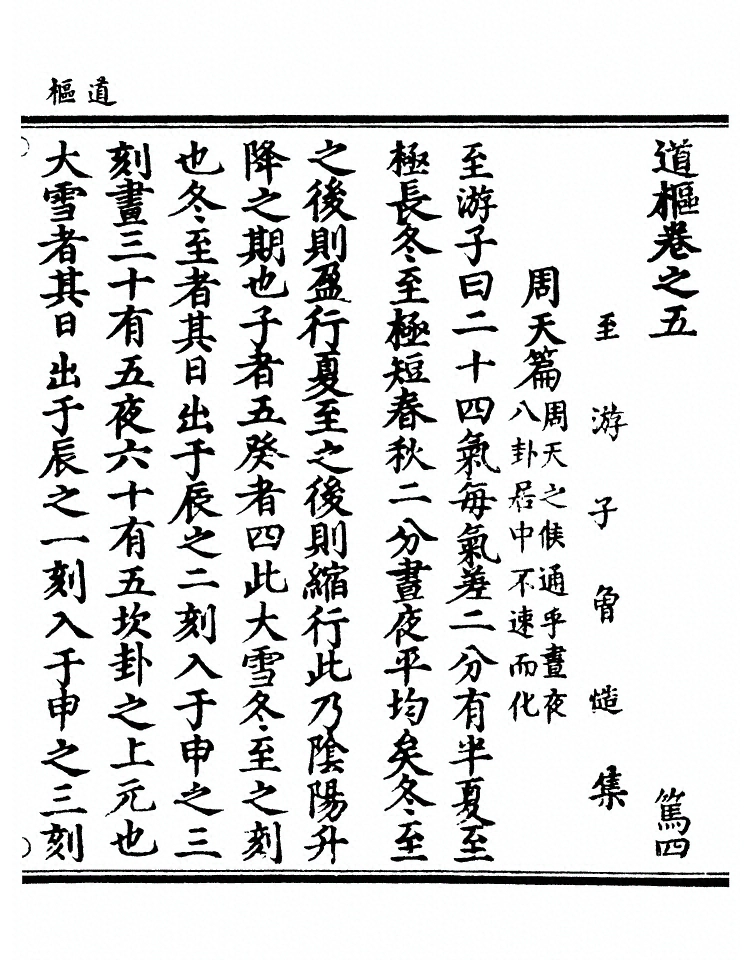 道樞
道樞卷之五　篤四
至游子曾慥集
周天篇
周天之候通乎晝夜
八卦居中不速而化
至游子曰二十四氣每氣差二分有半夏至
極長冬至極短春秋二分晝夜平均矣冬至
之後則盈行夏至之後則縮行此乃陰陽升
降之期也子者五癸者四此大雪冬至之刻
也冬至者其日出于辰之二刻入于申之三
刻晝三十有五夜六十有五坎卦之上元也
大雪者其日出于辰之一刻入于申之三刻